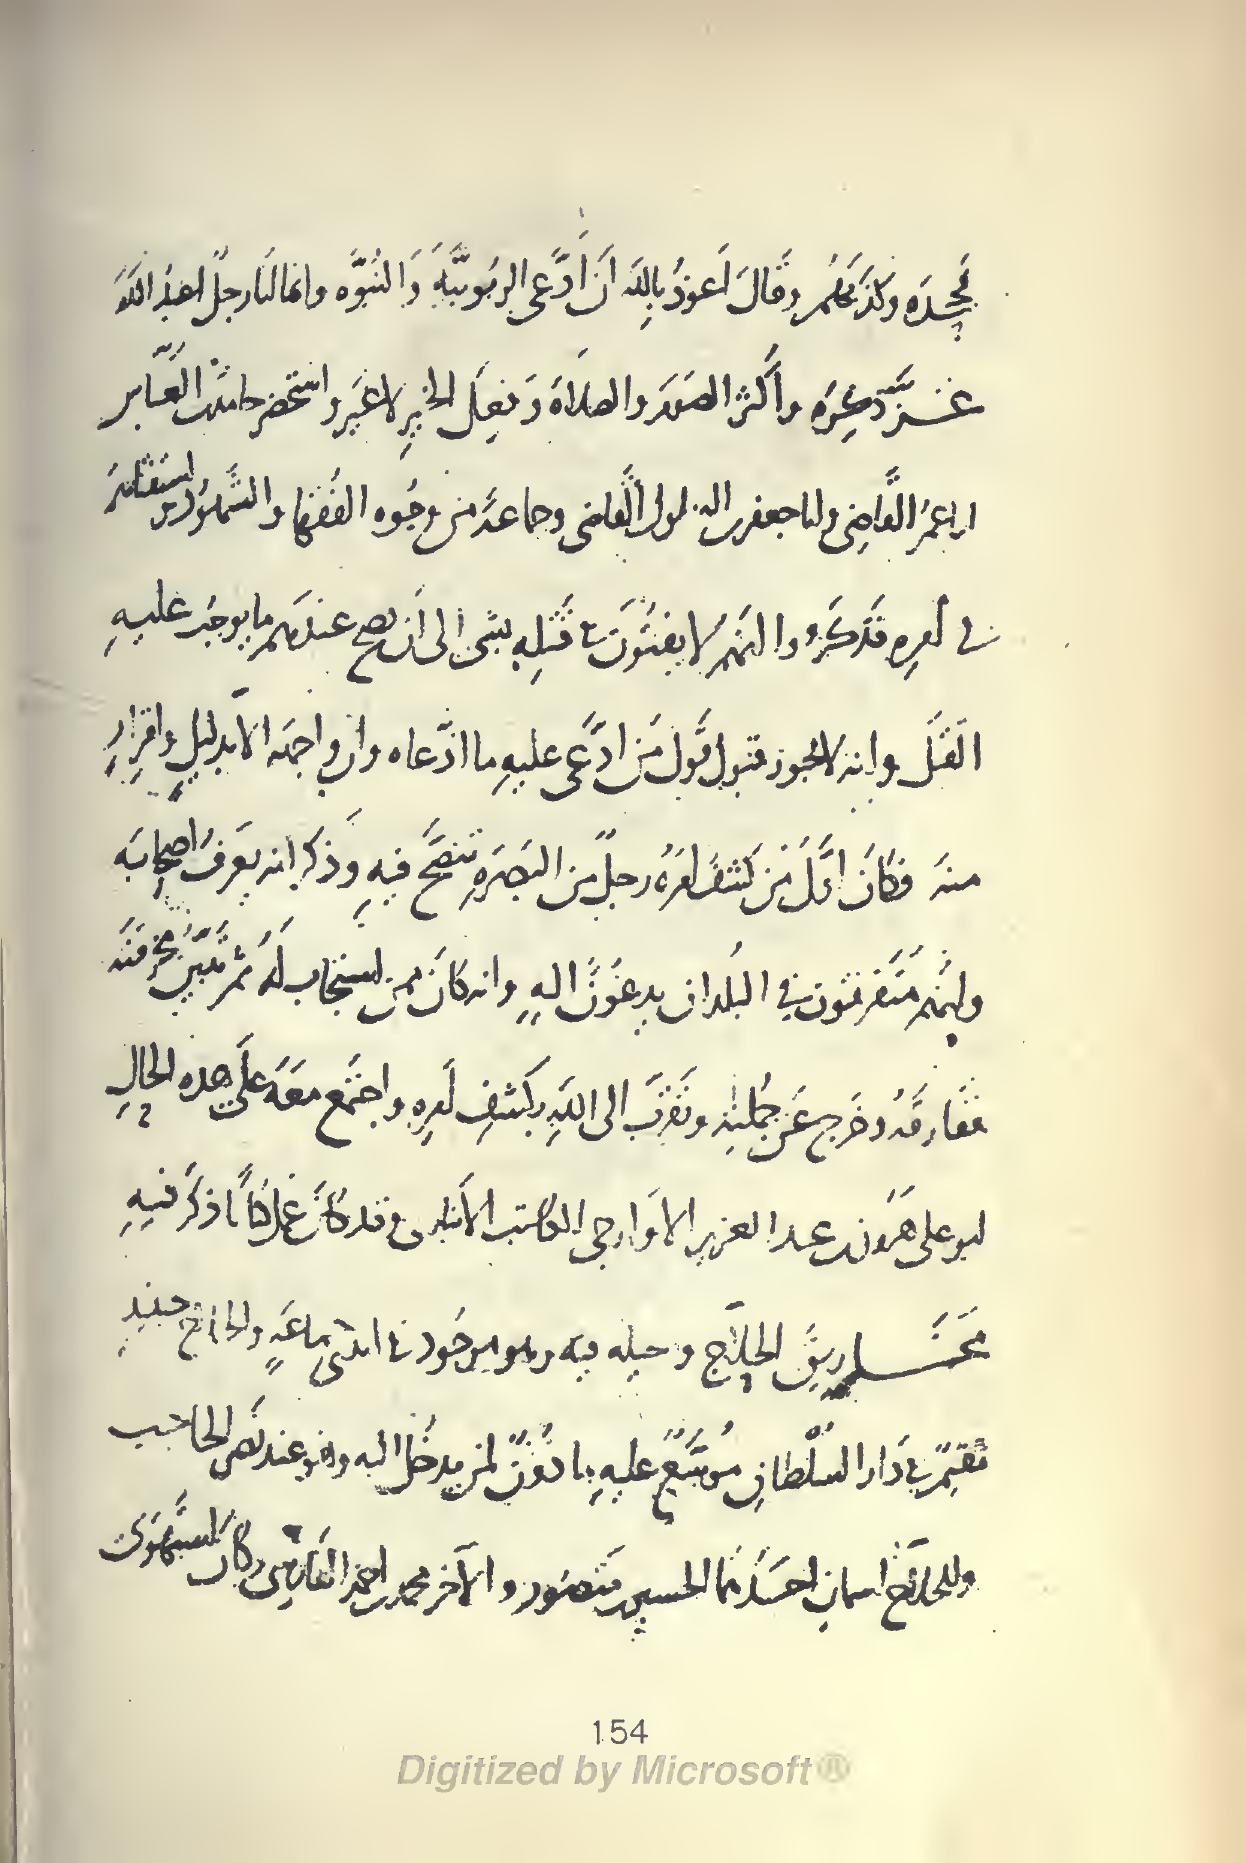 فجحده وكذبهم وقال أعوذ بالله أن أدعي الربوبيّة والنبوّه وانما انا رجل اعبد الله
عز ذكره وأكثر الصوم والصلاة وفعل الخير لا غير واستحضر حامد بن العباس
ابا عمر القاضي وابا جعفر بن البهلول القاضي وجماعة من وجوه الفقها والشهود واستفتاهم
في امره فذكروا انهم لا يفتون في قتله بشي الى أن يصح عندهم ما يوجب عليه
القتل وانه لا يجوز قبول قول من ادّعى عليه ما ادّعاه وان واجهه الا بدليل واقرار
منه فكان اول من كشف امره رجل من البصره تنصّح فيه وذكر انه يعرف اصحابه
وانهم متفرقون في البلدان يدعون اليه وانه كان ممن استجاب له ثم تبيّن مخرقته
ففارقه وخرج عن جملته وتقرب الى الله بكشف امره واجتمع معه على هذه الحال
ابو على هرون بن عبد العزيز الاوارجى الكاتب الانبارى وقد كان عمل كتابا ذكر فيه
مخاريق الحلّاج وحيله فيه وهو موجود في ايدي جماعة والحلاج حينئذ
مقيم في دار السلطان موسّع عليه مأذون لمن يدخل اليه وهو عند نصر الحاجب
وللحلاج اسمان احدهما الحسين بن منصور والآخر محمد بن احمد الفارسي وكان استهوى
154
Digitized by Microsoft®